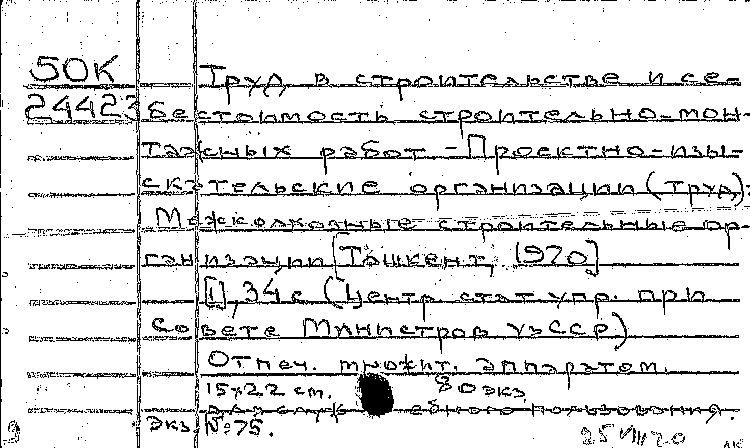 50К
24423
Труд в строительстве и се-
бестоимость строительно-мон-
тажных работ - Проектно-изы-
скательские организации (труд).
Межколхозные строительные ор-
ганизации [Ташкент, 1970]
[1], 34 с (Центр стат упр. при
Совете Министров УзССР)
Отпеч. множит. аппаратом.
15х22 см. 80 экз.
пользования.
Экз. №75.
25 VIII 70